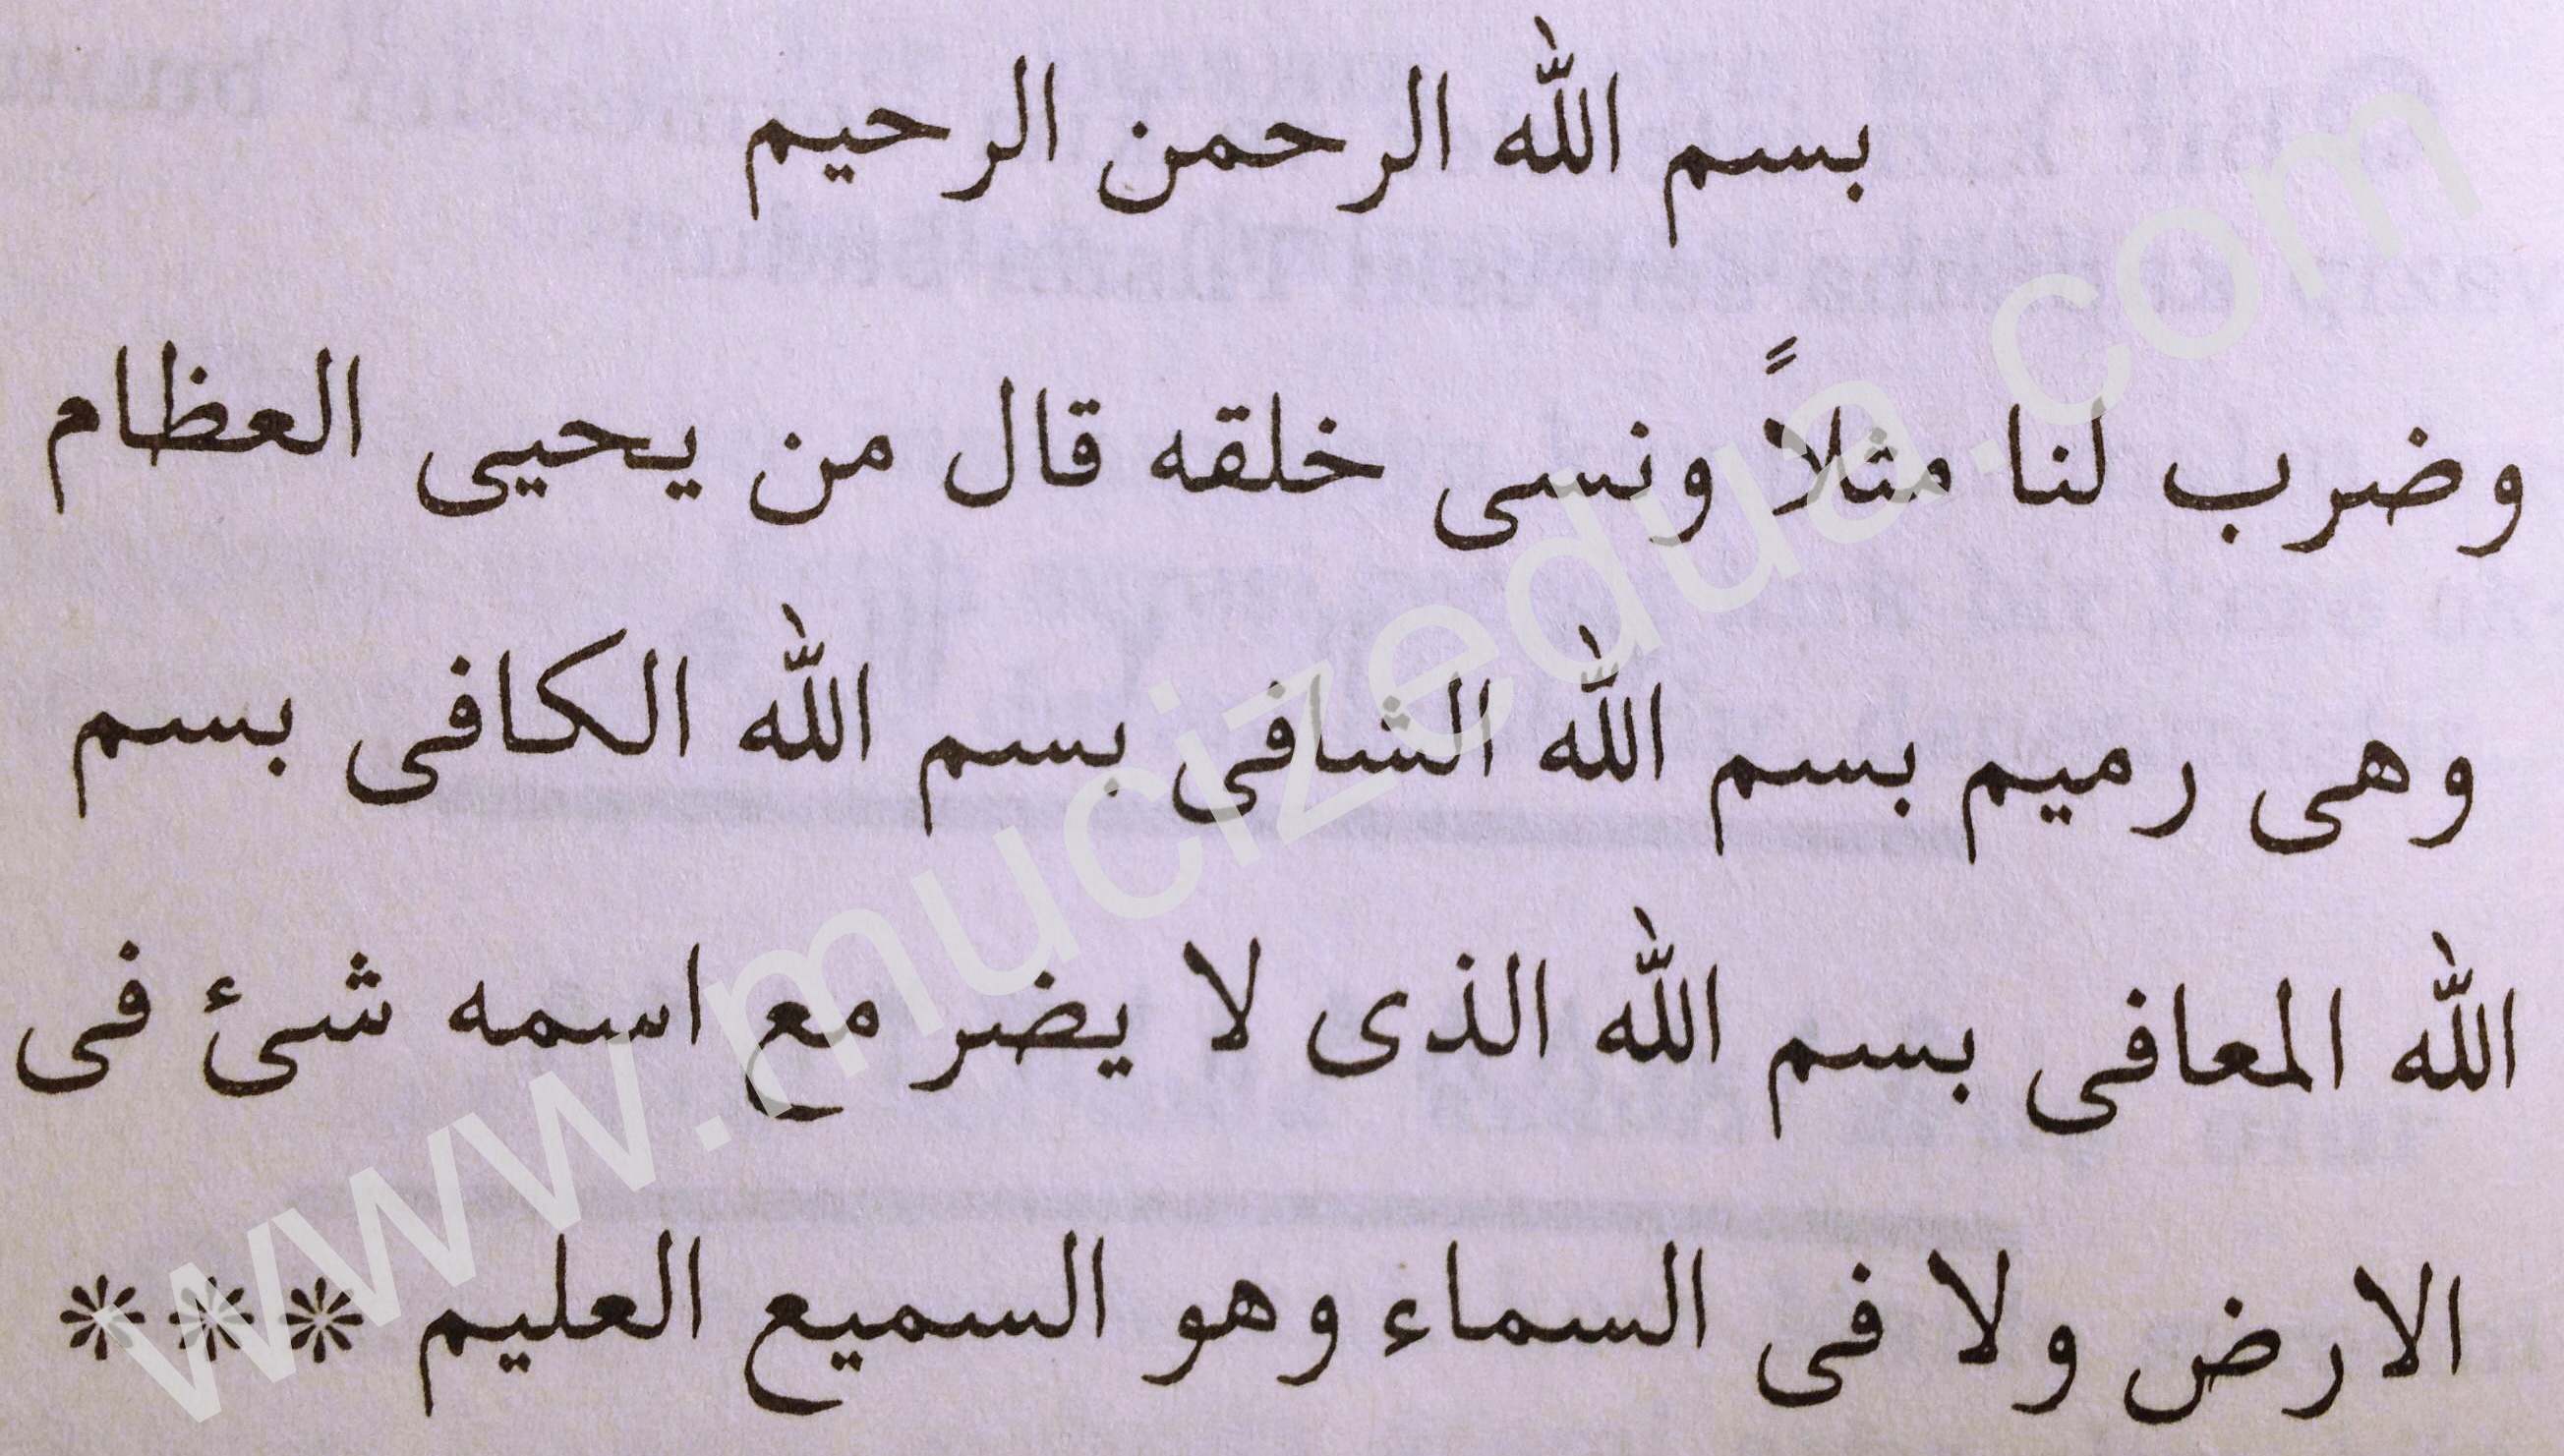 بسم الله الرحمن الرحيم
وضرب لنا مثلاً ونسى خلقه قال من يحيى العظام
وهى رميم بسم الله الشافى بسم الله الكافى بسم
الله المعافى بسم الله الذى لا يضر مع اسمه شئ فى
الارض ولا فى السماء وهو السميع العليم ***
www.mucizedua.com